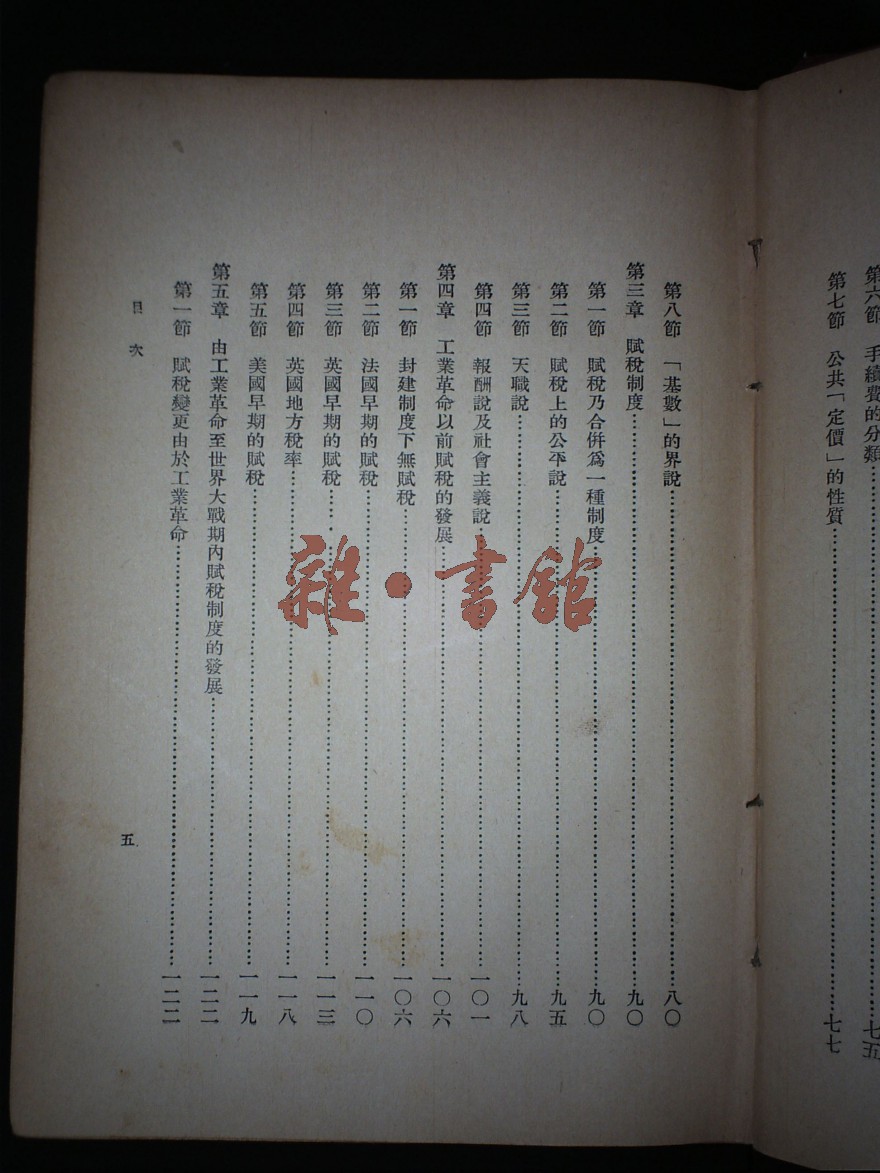 第六節　手續費的分類……七五
第七節　公共「定價」的性質……七七
第八節　「基數」的界說……八〇
第三章　賦稅制度……九〇
第一節　賦稅乃合併爲一種制度……九〇
第二節　賦稅上的公平說……九五
第三節　天職說……九八
第四節　報酬說及社會主義說……一〇一
第四章　工業革命以前賦稅的發展……一〇六
第一節　封建制度下無賦稅……一〇六
第二節　法國早期的賦稅……一一〇
第三節　英國早期的賦稅……一一三
第四節　英國地方稅率……一一八
第五節　美國早期的賦稅……一一九
第五章　由工業革命至世界大戰期內賦稅制度的發展……一二二
第一節　賦稅變更由於工業革命……一二二
目次
五
雜·書館